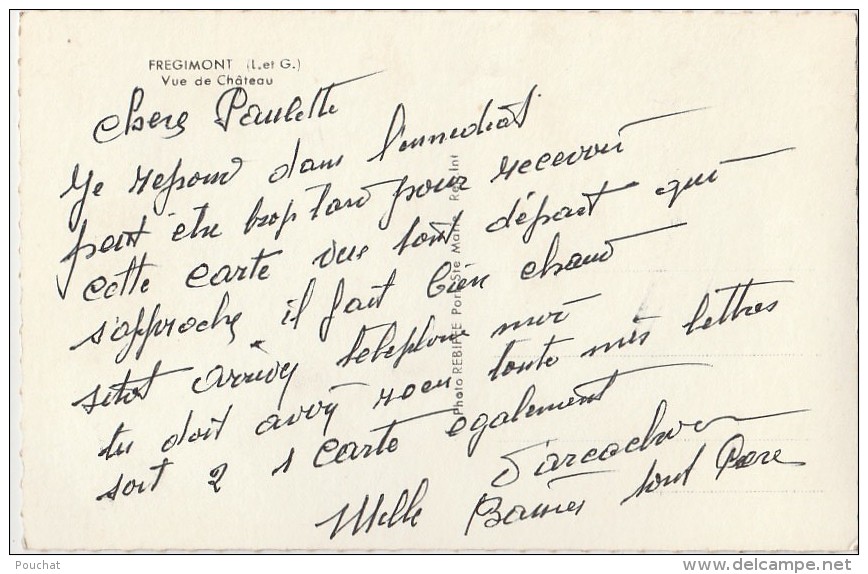 FREGIMONT (L. et G.)
Vue de Château
Chere Paulette
Je repond dans l'immediat
peut être trop tard pour recevoir
cette carte vue tout départ qui
s'approche il fait bien chaud
sitot arrivé telephone moi
tu doit avoir recu toute mes lettres
soit 2 1 carte egalement
D'arcachon
Mille Baisers tout Pere
Photo REBIERE Port Ste Marie
Pouchat
delcampe.net